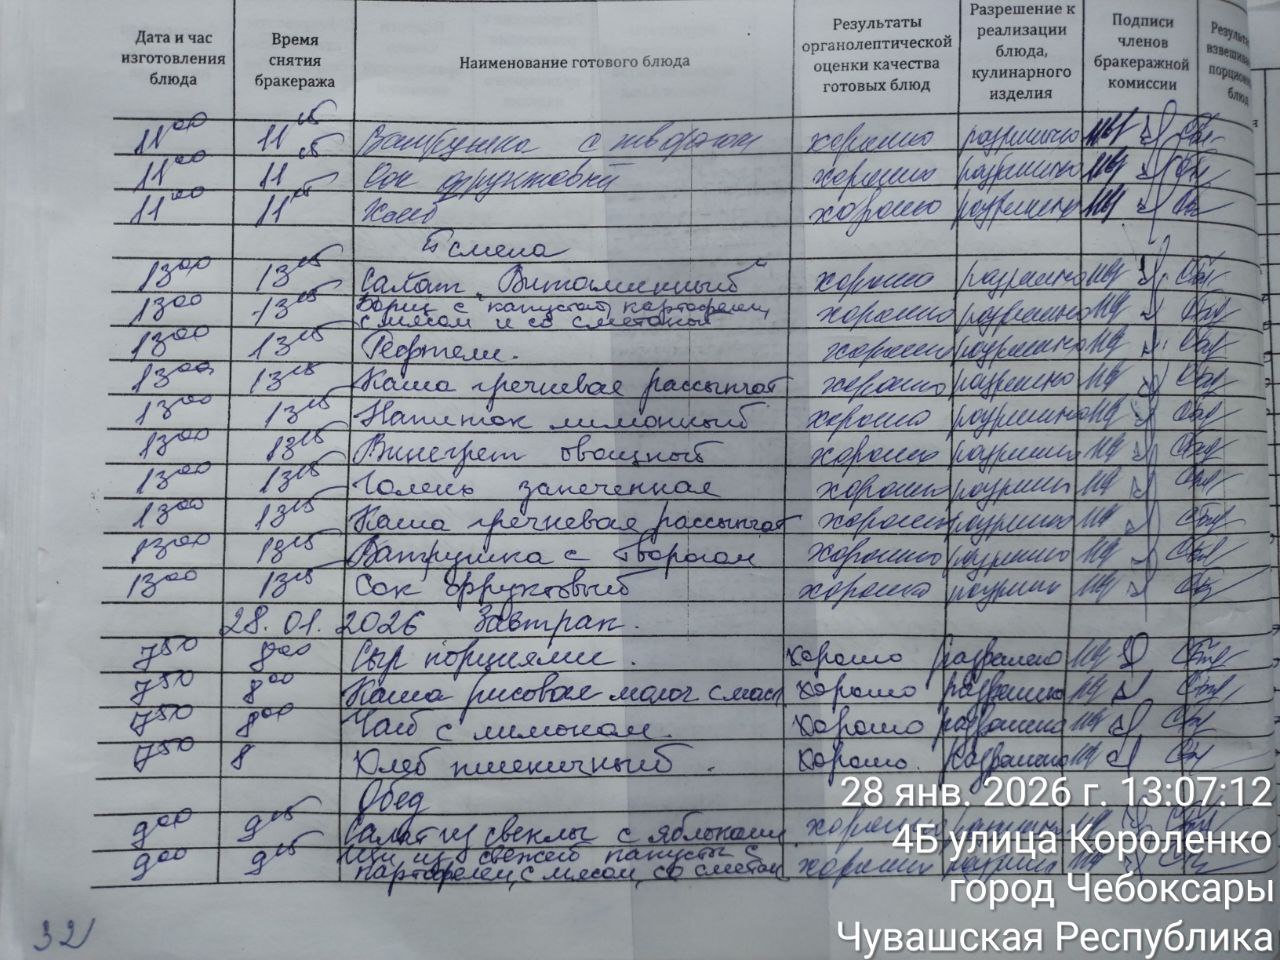 Дата и час изготовления блюда | Время снятия бракеража | Наименование готового блюда | Результаты органолептической оценки качества готовых блюд | Разрешение к реализации блюда, кулинарного изделия | Подписи членов бракеражной комиссии
11 00 | 11 15 | Ватрушка с творогом | хорошо | разрешено
11 00 | 11 15 | Сок фруктовый | хорошо | разрешено
11 00 | 11 15 | хорошо | разрешено
смена
13 00 | 13 15 | Салат "Витаминный" | хорошо | разрешено
13 00 | 13 15 | Борщ с капустой, картофелем, с мясом и со сметаной | хорошо | разрешено
13 00 | 13 15 | Тефтели. | хорошо | разрешено
13 00 | 13 15 | Каша гречневая рассыпчат | хорошо | разрешено
13 00 | 13 15 | Напиток лимонный | хорошо | разрешено
13 00 | 13 15 | Винегрет овощной | хорошо | разрешено
13 00 | 13 15 | Голень запеченная | хорошо | разрешено
13 00 | 13 15 | Каша гречневая рассыпчат | хорошо | разрешено
13 00 | 13 15 | Ватрушка с творогом | хорошо | разрешено
13 00 | 13 15 | Сок фруктовый | хорошо | разрешено
28.01.2026 Завтрак.
7 50 | 8 00 | Сыр порциями. | хорошо | разрешено
7 50 | 8 00 | Каша рисовая молоч с масл | хорошо | разрешено
7 50 | 8 00 | Чай с лимоном. | хорошо | разрешено
7 50 | 8 | Хлеб пшеничный. | хорошо. | разрешено
Обед
9 00 | 9 15 | Салат из свеклы с яблоками | хорошо
9 00 | 9 15 | Щи из свежей капусты с картофелем, с мясом, со сметан | хорошо
32
28 янв. 2026 г. 13:07:12
4Б улица Короленко
город Чебоксары
Чувашская Республика